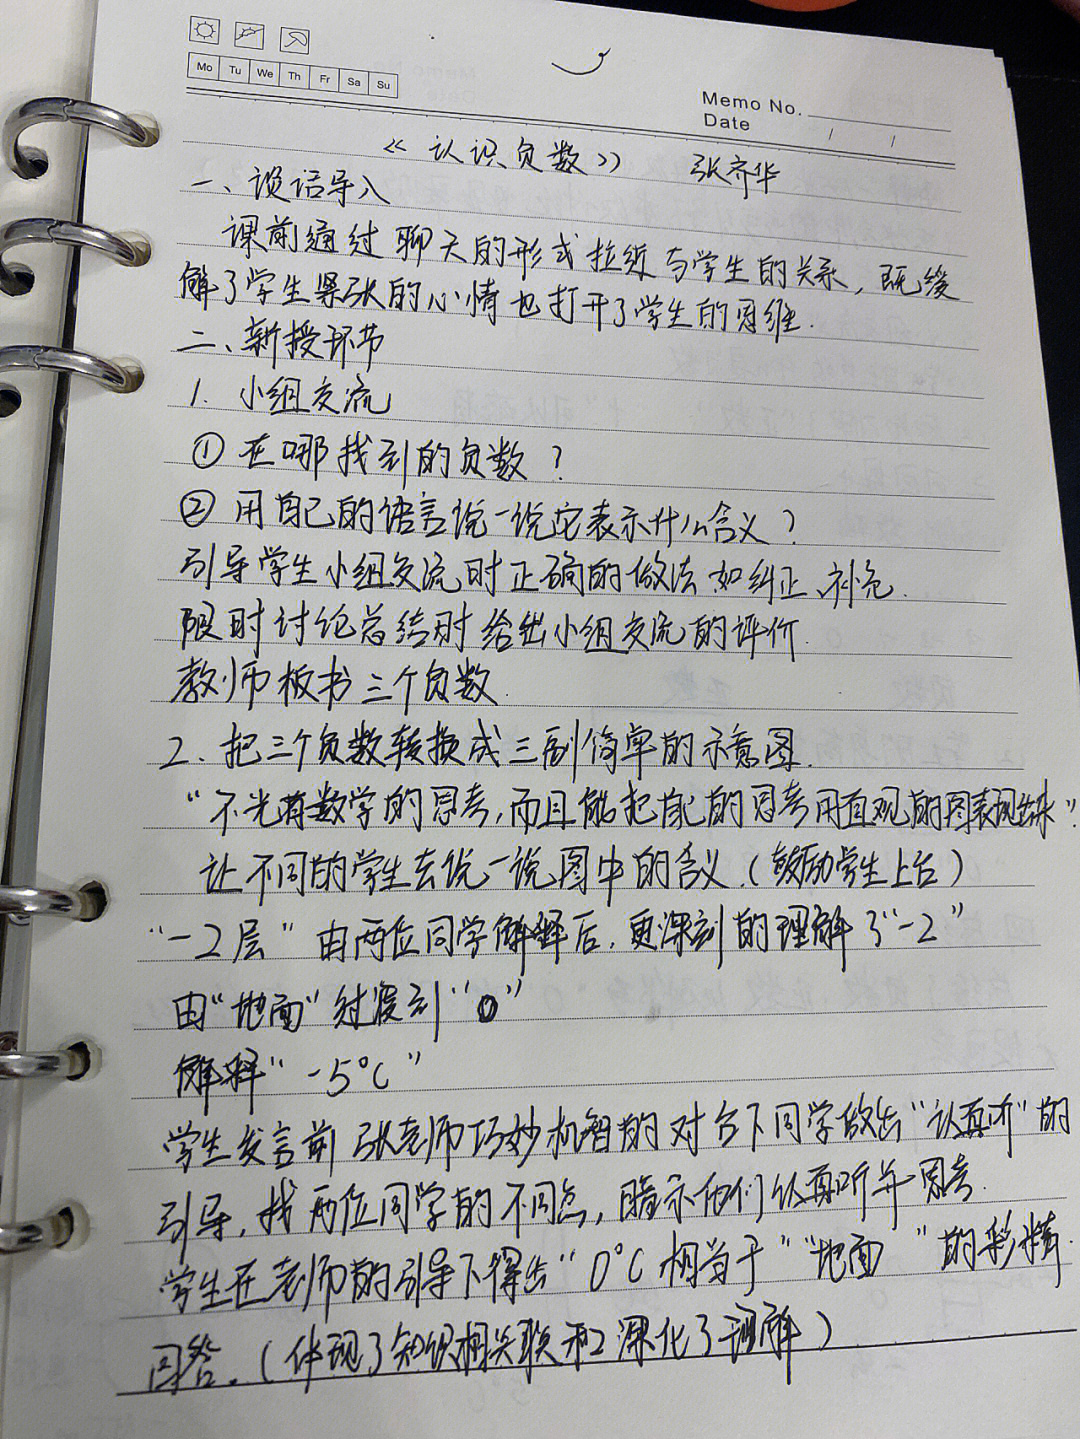 Mo Tu We Th Fr Sa Su
Memo No.
Date / /
《认识负数》 张齐华
一、谈话导入
课前通过聊天的形式拉近与学生的关系，既缓
解了学生紧张的心情也打开了学生的思维.
二、新授环节
1. 小组交流
① 在哪找到的负数？
② 用自己的语言说一说它表示什么含义？
引导学生小组交流时正确的做法如纠正、补充.
限时讨论总结时给出小组交流的评价.
教师板书三个负数.
2. 把三个负数转换成三副简单的示意图.
“不光有数学的思考,而且能把自己的思考用直观的图表现出来”
让不同的学生去说一说图中的含义.(鼓励学生上台)
“-2层”由两位同学解释后,更深刻的理解了“-2”
由“地面”过渡到“0”
解释“-5℃”
学生发言前张老师巧妙机智的对台下同学做出“认真听”的
引导,找两位同学的不同点,暗示他们认真听并思考.
学生在老师的引导下得出“0℃相当于““地面 ”的彩精
回答.(体现了知识相关联和深化了理解)